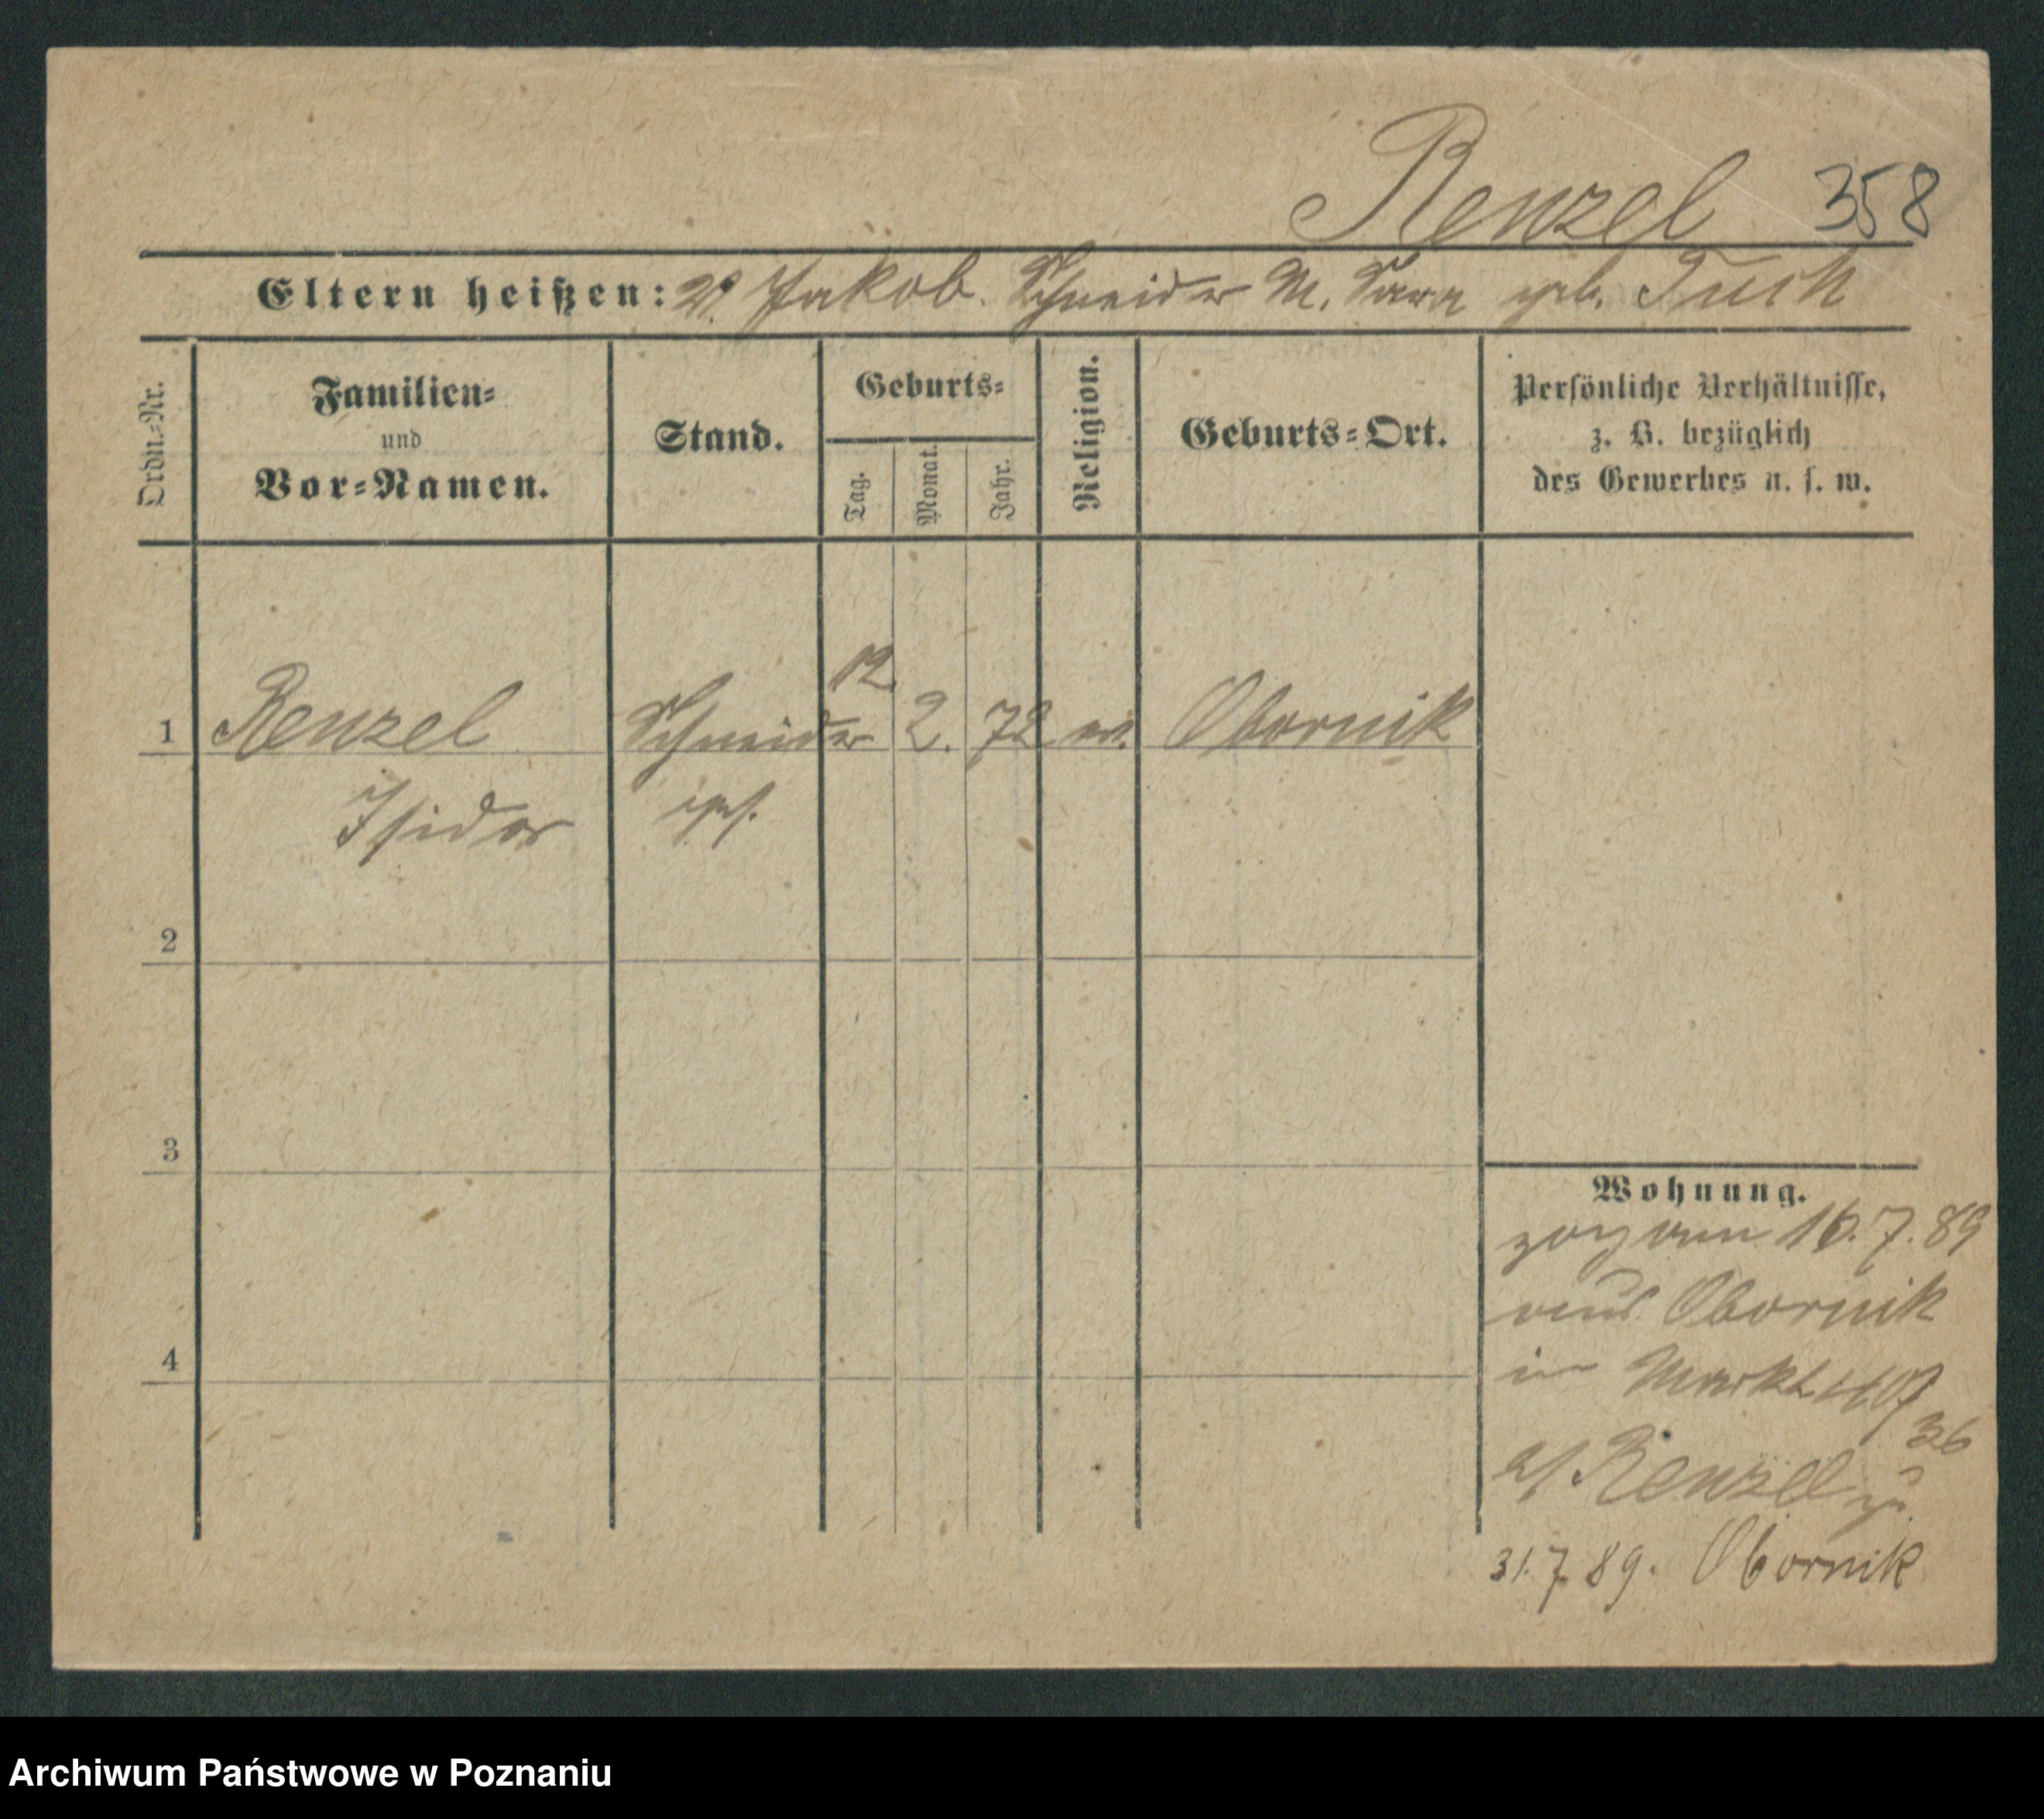 Renzel 358
Eltern heißen: V. Jakob. Schneider M. Sara geb. Tuch
Ordn.-Nr.
Familien-
und
Vor-Namen.
Stand.
Geburts-
Tag.
Monat.
Jahr.
Religion.
Geburts-Ort.
Persönliche Verhältnisse,
z. B. bezüglich
des Gewerbes u. s. w.
12.
1 Renzel Schneider 2. 72 Obornik
Isidor
2
3
4
Wohnung.
zog am 16. 7. 89
aus Obornik
in Markt
36
Renzel zu
31. 7. 89. Obornik
Archiwum Państwowe w Poznaniu